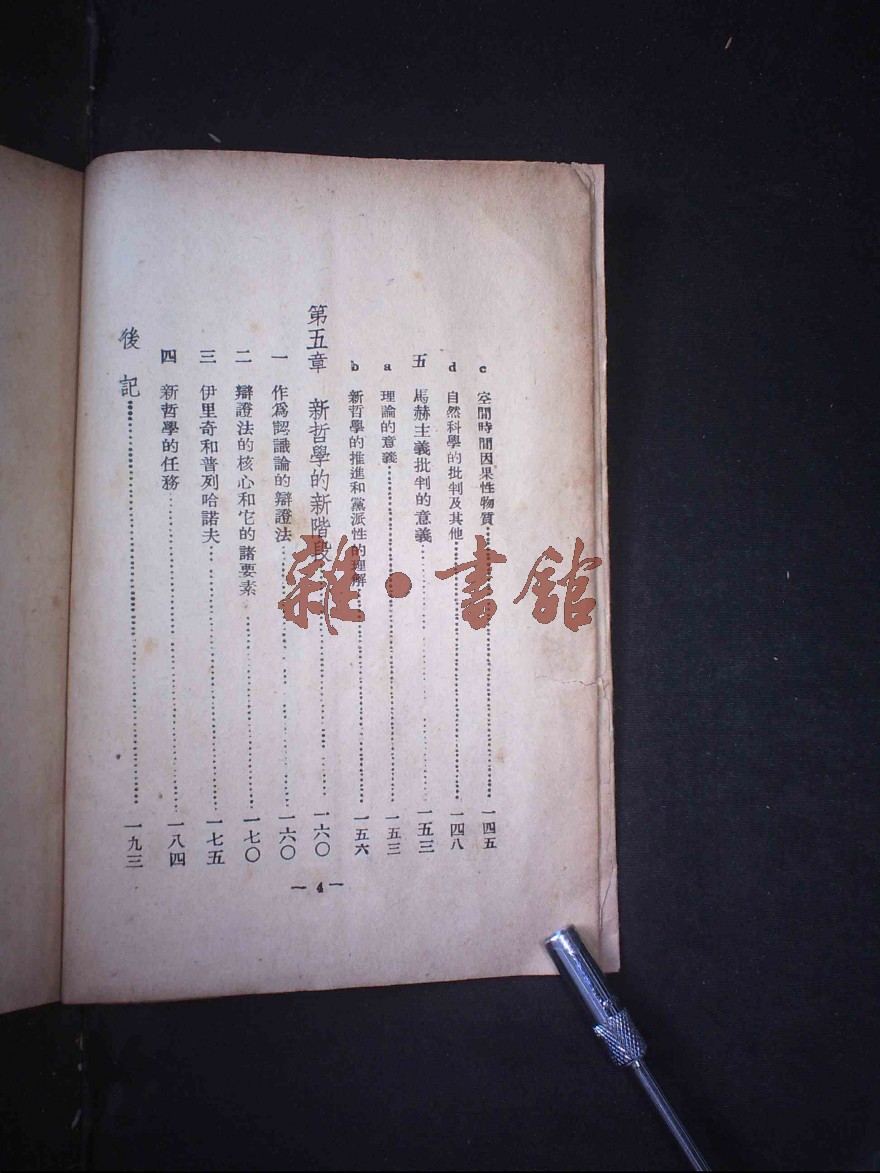 c 空間時間因果性物質 一四五
d 自然科學的批判及其他 一四八
五 馬赫主義批判的意義 一五三
a 理論的意義 一五三
b 新哲學的推進和黨派性的理解 一五六
第五章 新哲學的新階段 一六〇
一 作爲認識論的辯證法 一六〇
二 辯證法的核心和它的諸要素 一七〇
三 伊里奇和普列哈諾夫 一七五
四 新哲學的任務 一八四
後記 一九三
— 4 —
雜·書館